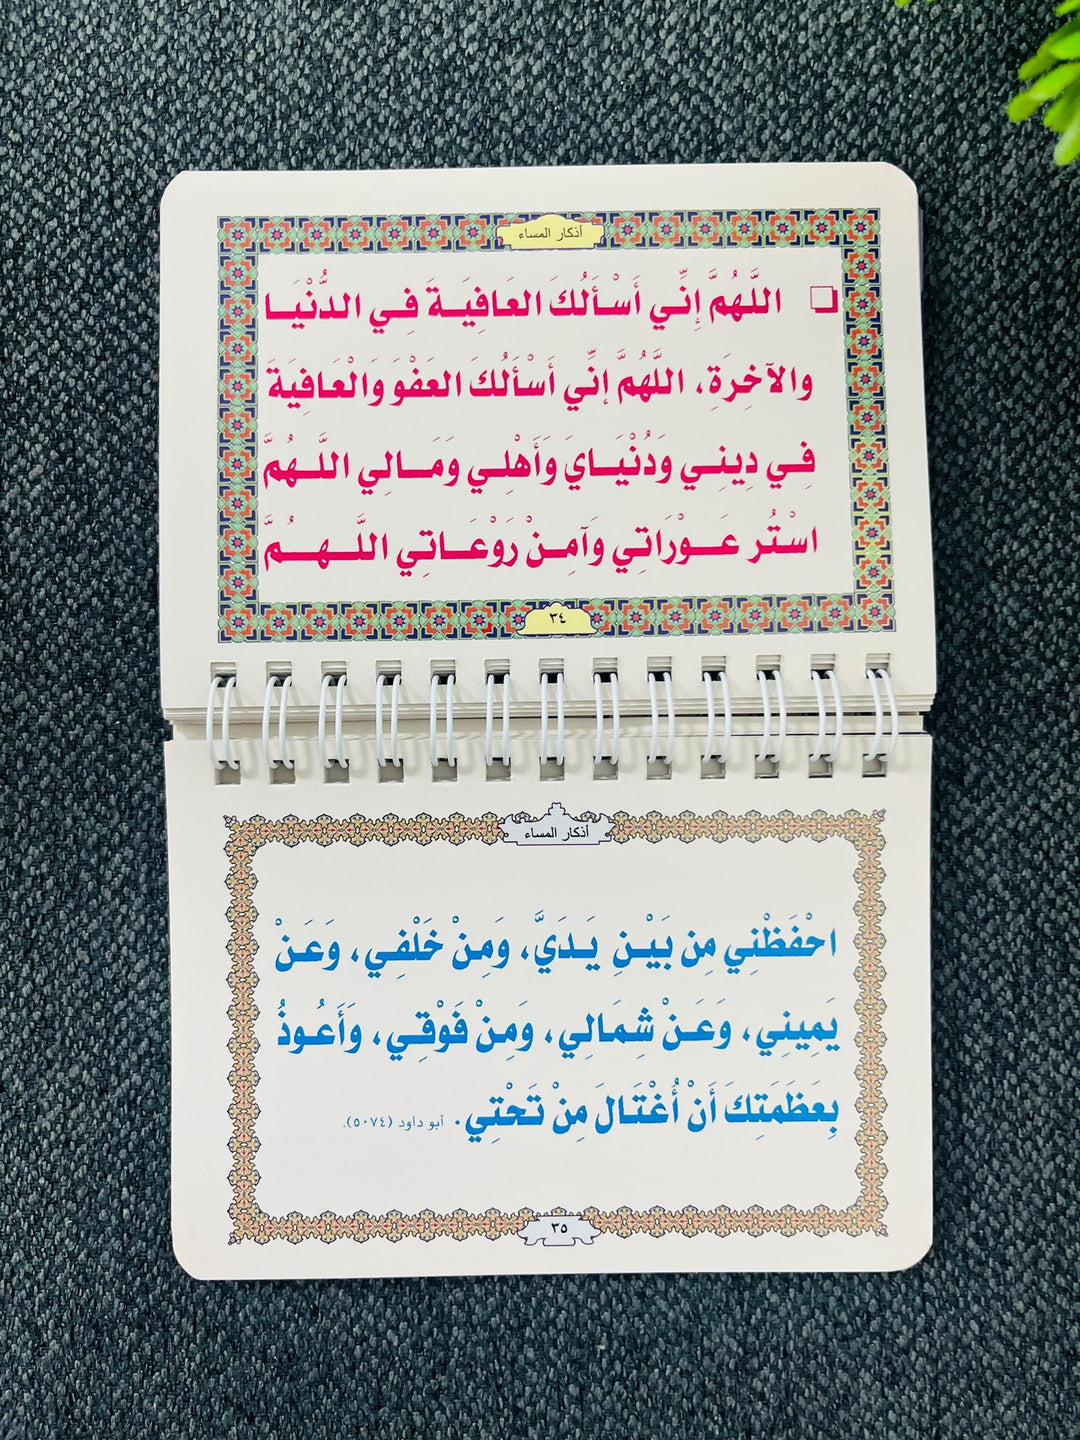 أذكار المساء
❏ اللَّهُمَّ إِنِّي أَسْأَلُكَ العَافِيَةَ فِي الدُّنْيَا
والآخِرَةِ، اللَّهُمَّ إنِّي أَسْأَلُكَ العَفْوَ وَالْعَافِيَةَ
فِي دِينِي وَدُنْيَايَ وَأَهْلِي وَمَالِي اللهُمَّ
اسْتُر عَوْرَاتِي وَآمِنْ رَوْعَاتِي اللَّهُمَّ
٣٤
أذكار المساء
احْفَظْنِي مِن بَيْنِ يَدَيَّ، وَمِنْ خَلْفِي، وَعَنْ
يَمِينِي، وَعَنْ شِمَالِي، وَمِنْ فَوْقِي، وَأَعُوذُ
بِعَظَمَتِكَ أَنْ أُغْتَالَ مِنْ تَحْتِي. أبو داود (٥٠٧٤).
٣٥